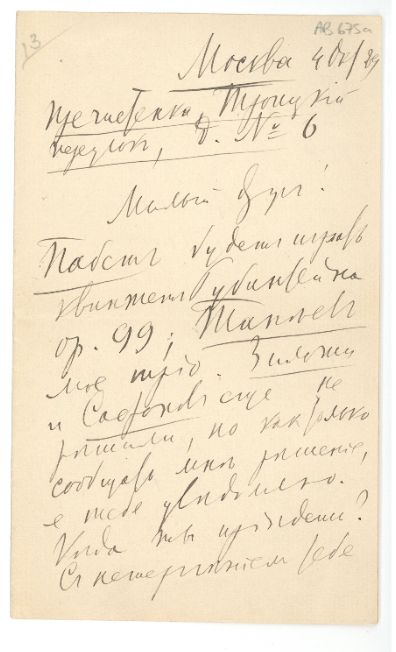 13
AB 675a
Москва 4 Окт/89
Пречистенка, Троицкій
переулокъ, д. № 6
Милый другъ!
Пабстъ будетъ играть
квинтетъ Рубинштейна
op. 99; Танѣевъ
мое тріо. Зилоти
и Сафоновъ еще не
рѣшили, но какъ только
сообщатъ мнѣ рѣшеніе,
я тебя увѣдомлю.
Когда ты пріѣдешь?
Съ нетерпѣніемъ тебя